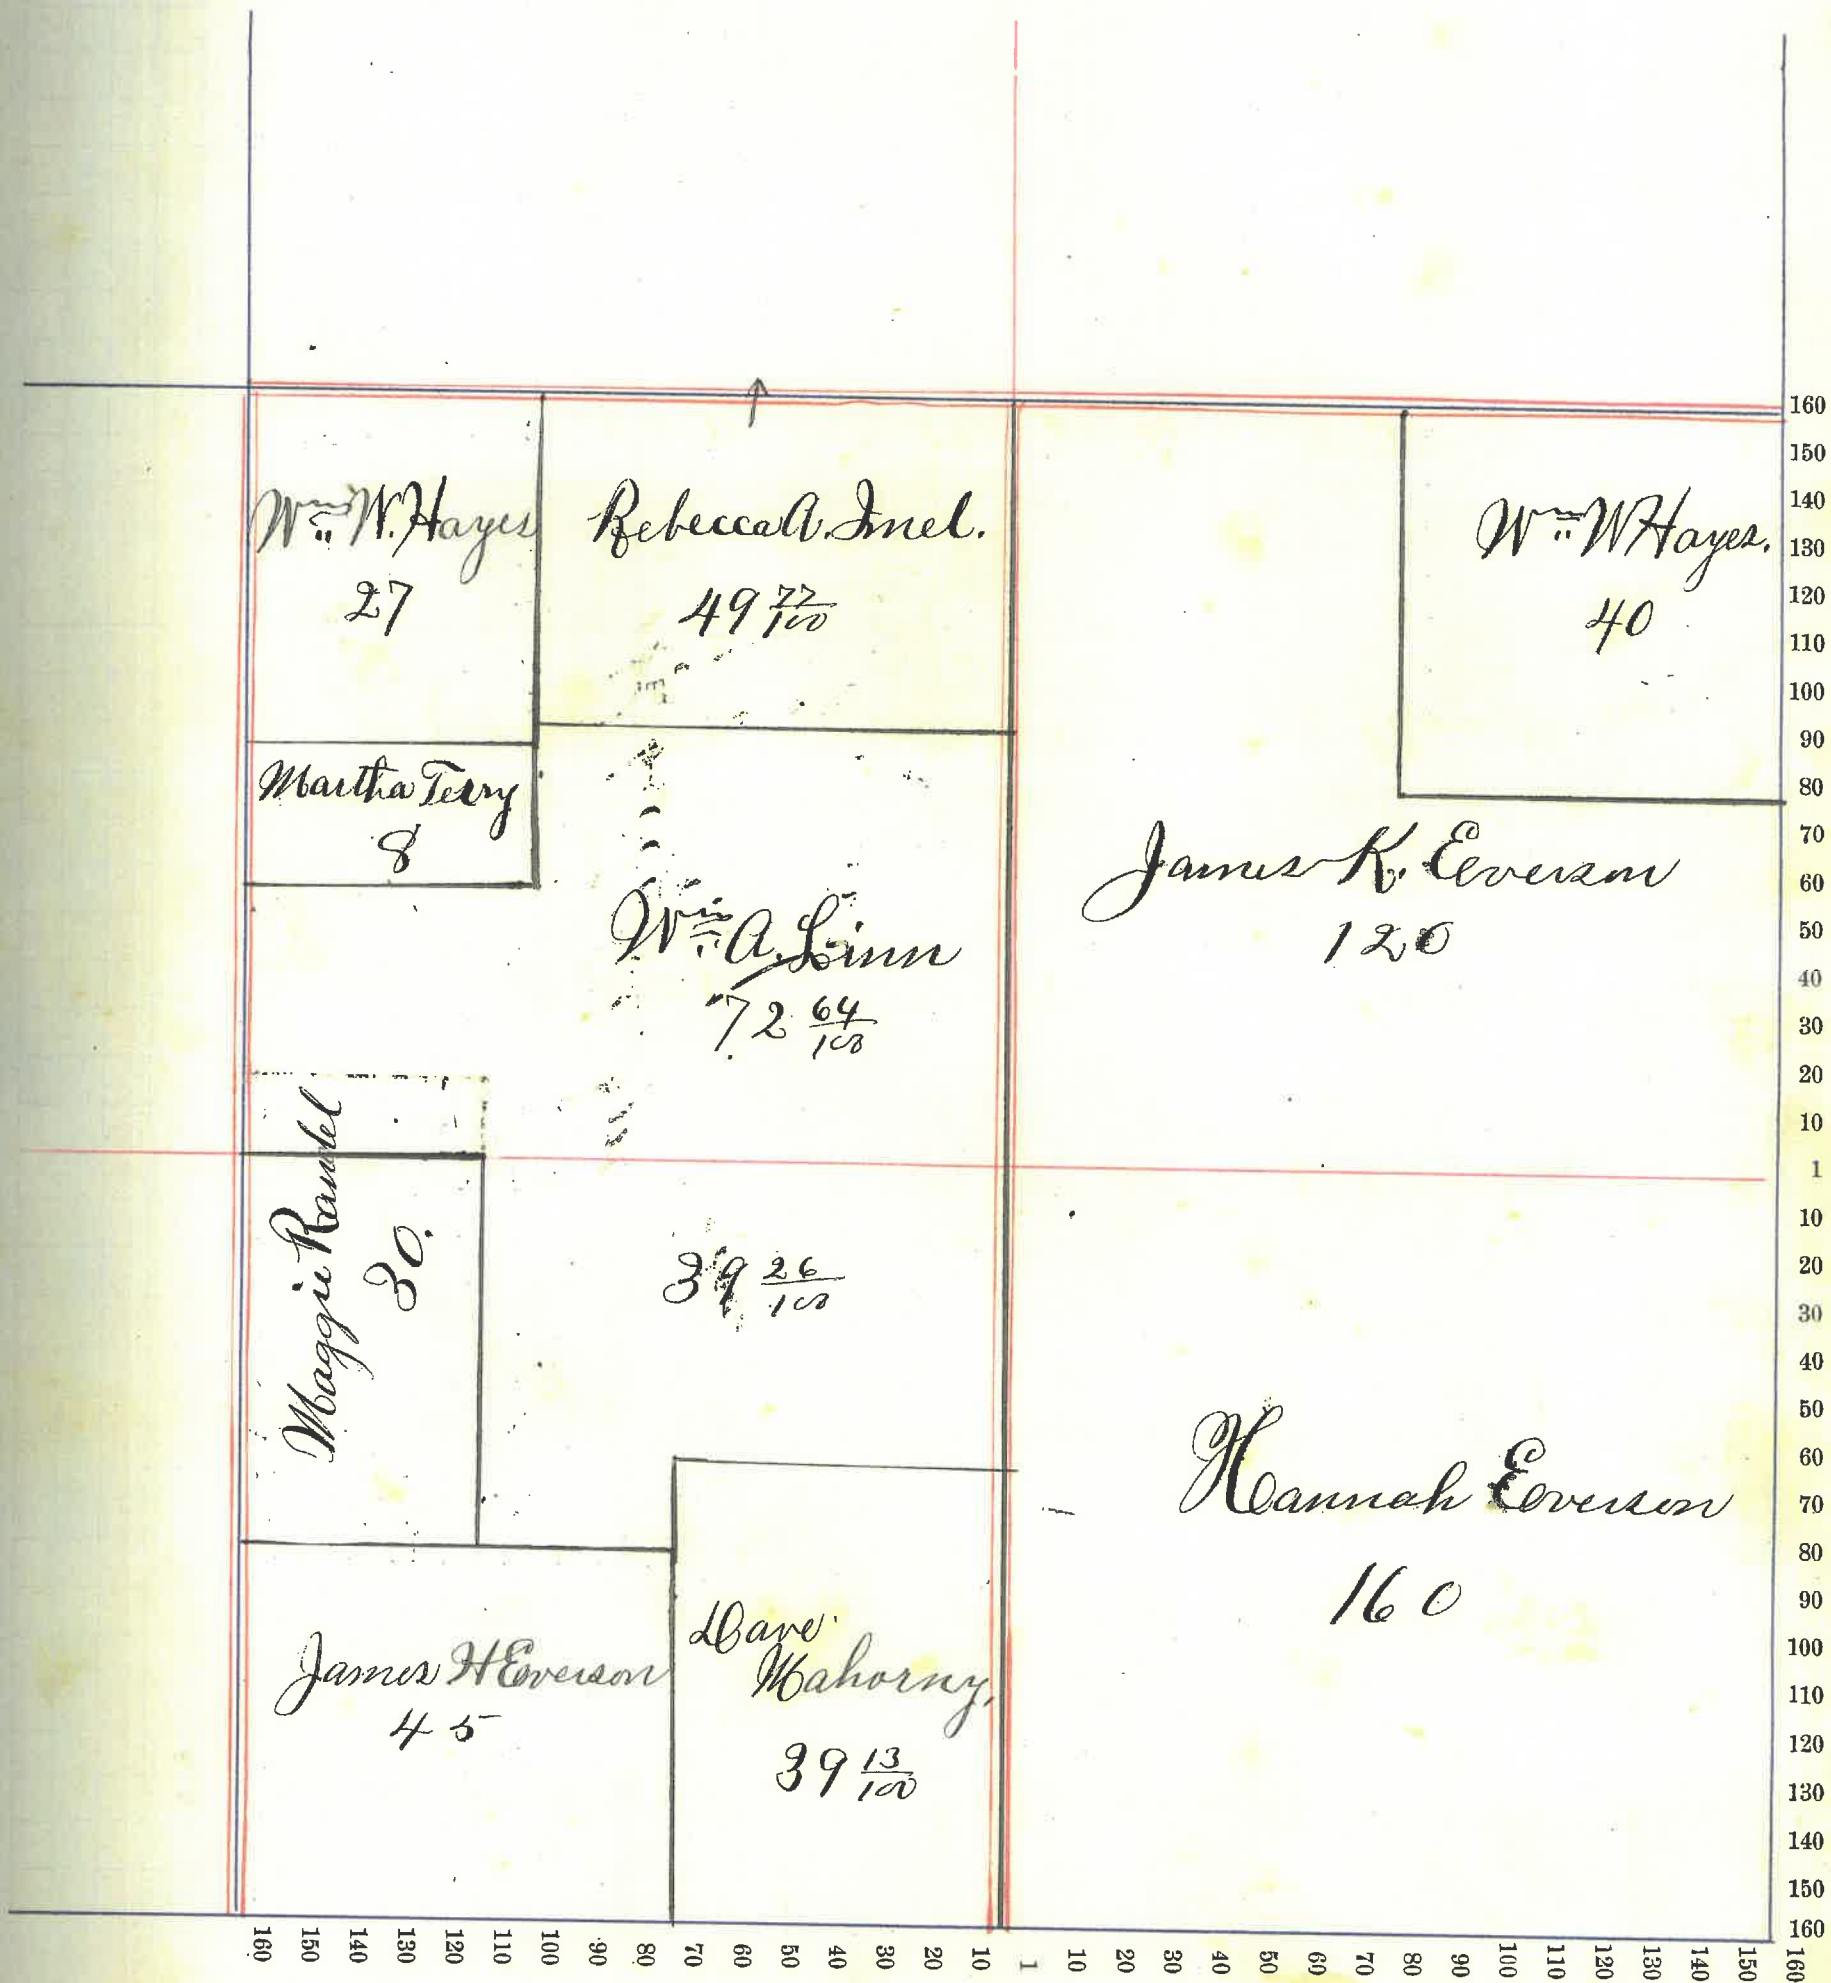 Wm W. Hayes
27
Rebecca A. Imel.
49 77/100
Wm W Hayes.
40
Martha Terry
8
James K. Everson
120
Wm A. Linn
72 64/100
Maggie Randel
30.
39 26/100
Hannah Everson
160
James H Everson
45
Dave
Mahorny,
39 13/100
160
150
140
130
120
110
100
90
80
70
60
50
40
30
20
10
1
10
20
30
40
50
60
70
80
90
100
110
120
130
140
150
160
160 150 140 130 120 110 100 90 80 70 60 50 40 30 20 10 1 10 20 30 40 50 60 70 80 90 100 110 120 130 140 150 160